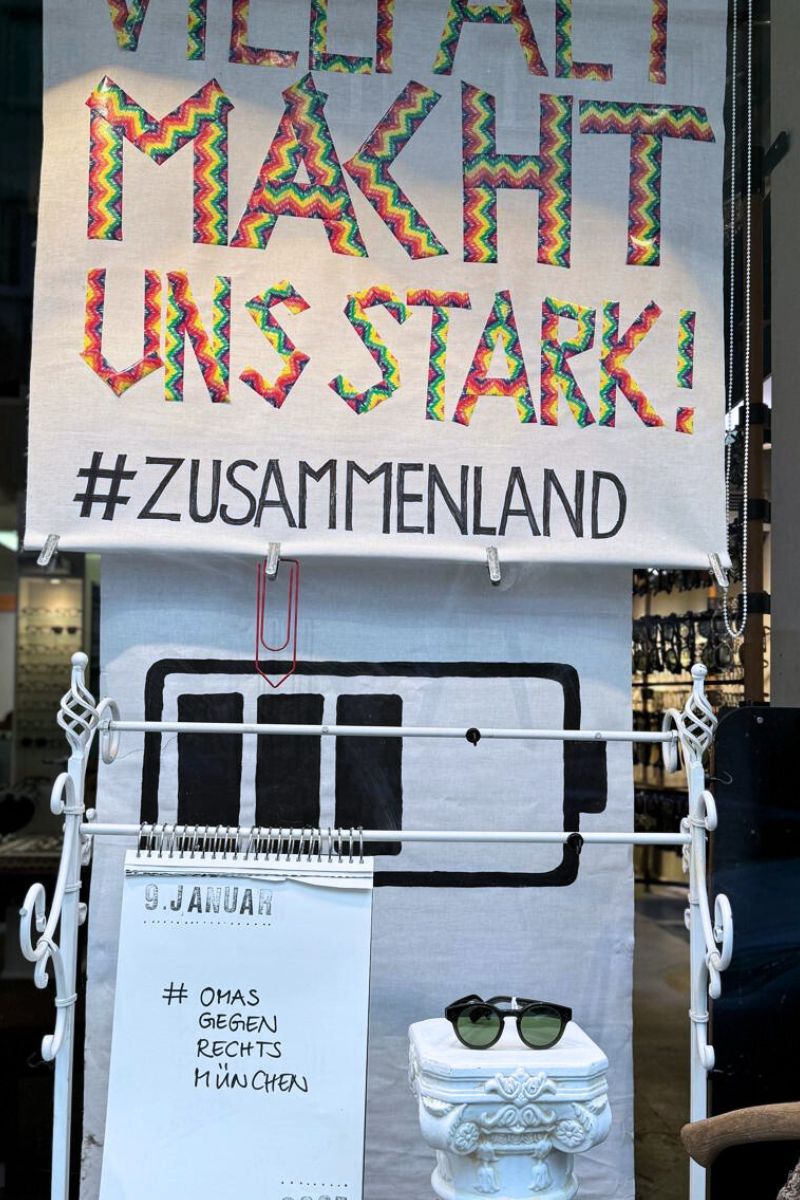 VIELFALT
MACHT
UNS STARK!
#ZUSAMMENLAND
9.JANUAR
# OMAS
GEGEN
RECHTS
MÜNCHEN